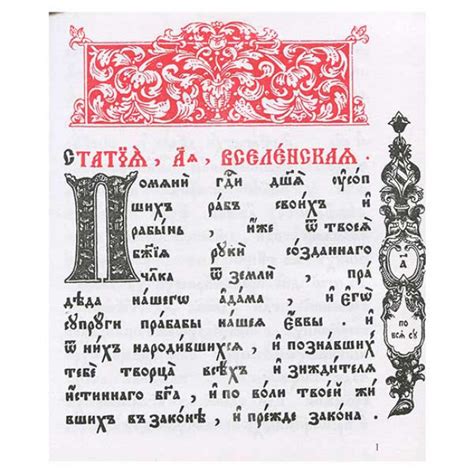 Статїѧ̀, а҃ѧ, вселе́нскаѧ.
Помѧнѝ гдⷭ҇и дш҃ѧ ᲂу҆со́п
шихъ ра́бъ свои́хъ и҆
рабы́нь, и҆́же ѿ твоеѧ̀
бж҃їѧ рукѝ со́зданнаго
чл҃ка ѿ землѝ, пра́
дѣда на́шегѡ а҆да́ма, и҆ є҆гѡ̀
супру́ги праба́бы на́шеѧ є҆́ввы. и҆
ѿ ни́хъ наро́дившихсѧ, и҆ позна́вшихъ
тебѐ творца̀ всѣ́хъ и҆ зижди́телѧ
и҆́стиннаго бг҃а, и҆ по во́ли твое́й жи́
вшихъ въ зако́нѣ, и҆ пре́жде зако́на.
а҃
по
всѧ су
1